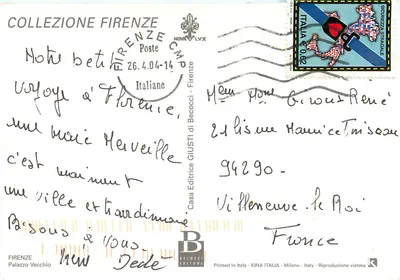 COLLEZIONE FIRENZE
NOVA LVX
FIRENZE CMP
Poste
26.4.04-14
Italiane
ITALIA
Notre
voyage à Florence,
une Merveille
c'est vraiment
une ville extraordinaire
Bisous à vous.
Dédé
FIRENZE
Palazzo Vecchio
Casa Editrice GIUSTI di Becocci - Firenze
B
BECOCCI
EDITORE
Mme Giroux René
21 bis rue Maurice
94290-
Villeneuve le Roi
France
Printed in Italy - KINA ITALIA - Milano - Italy - Riproduzione vietata
K